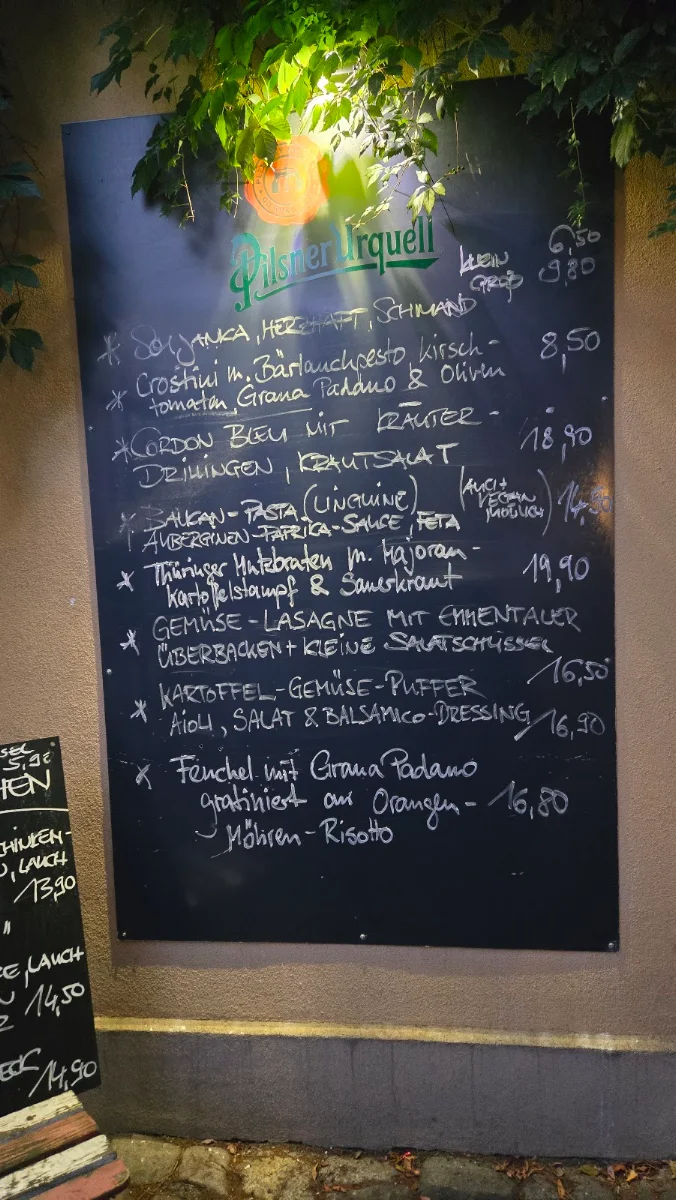 Pilsner Urquell
KLEIN 6,50
GROß 9,80
* SOLJANKA, HERZHAFT, SCHMAND
* Crostini m. Bärlauchpesto, Kirsch- 8,50
tomaten, Grana Padano & Oliven
* CORDON BLEU MIT KRÄUTER- 18,90
DRILLINGEN, KRAUTSALAT
* BALKAN-PASTA (LINGUINE) (AUCH VEGAN MÖGLICH) 14,90
AUBERGINEN-PAPRIKA-SAUCE, FETA
* Thüringer Mutzbraten m. Majoran- 19,90
Kartoffelstampf & Sauerkraut
* GEMÜSE-LASAGNE MIT EMMENTALER
ÜBERBACKEN + KLEINE SALATSCHÜSSEL
16,50
* KARTOFFEL-GEMÜSE-PUFFER
AIOLI, SALAT & BALSAMICO-DRESSING 16,90
* Fenchel mit Grana Padano
gratiniert an Orangen- 16,80
Möhren-Risotto
SEL
5,90
HEN
CHINKEN-
, LAUCH
13,90
"
E, LAUCH
14,50
ECK 14,90